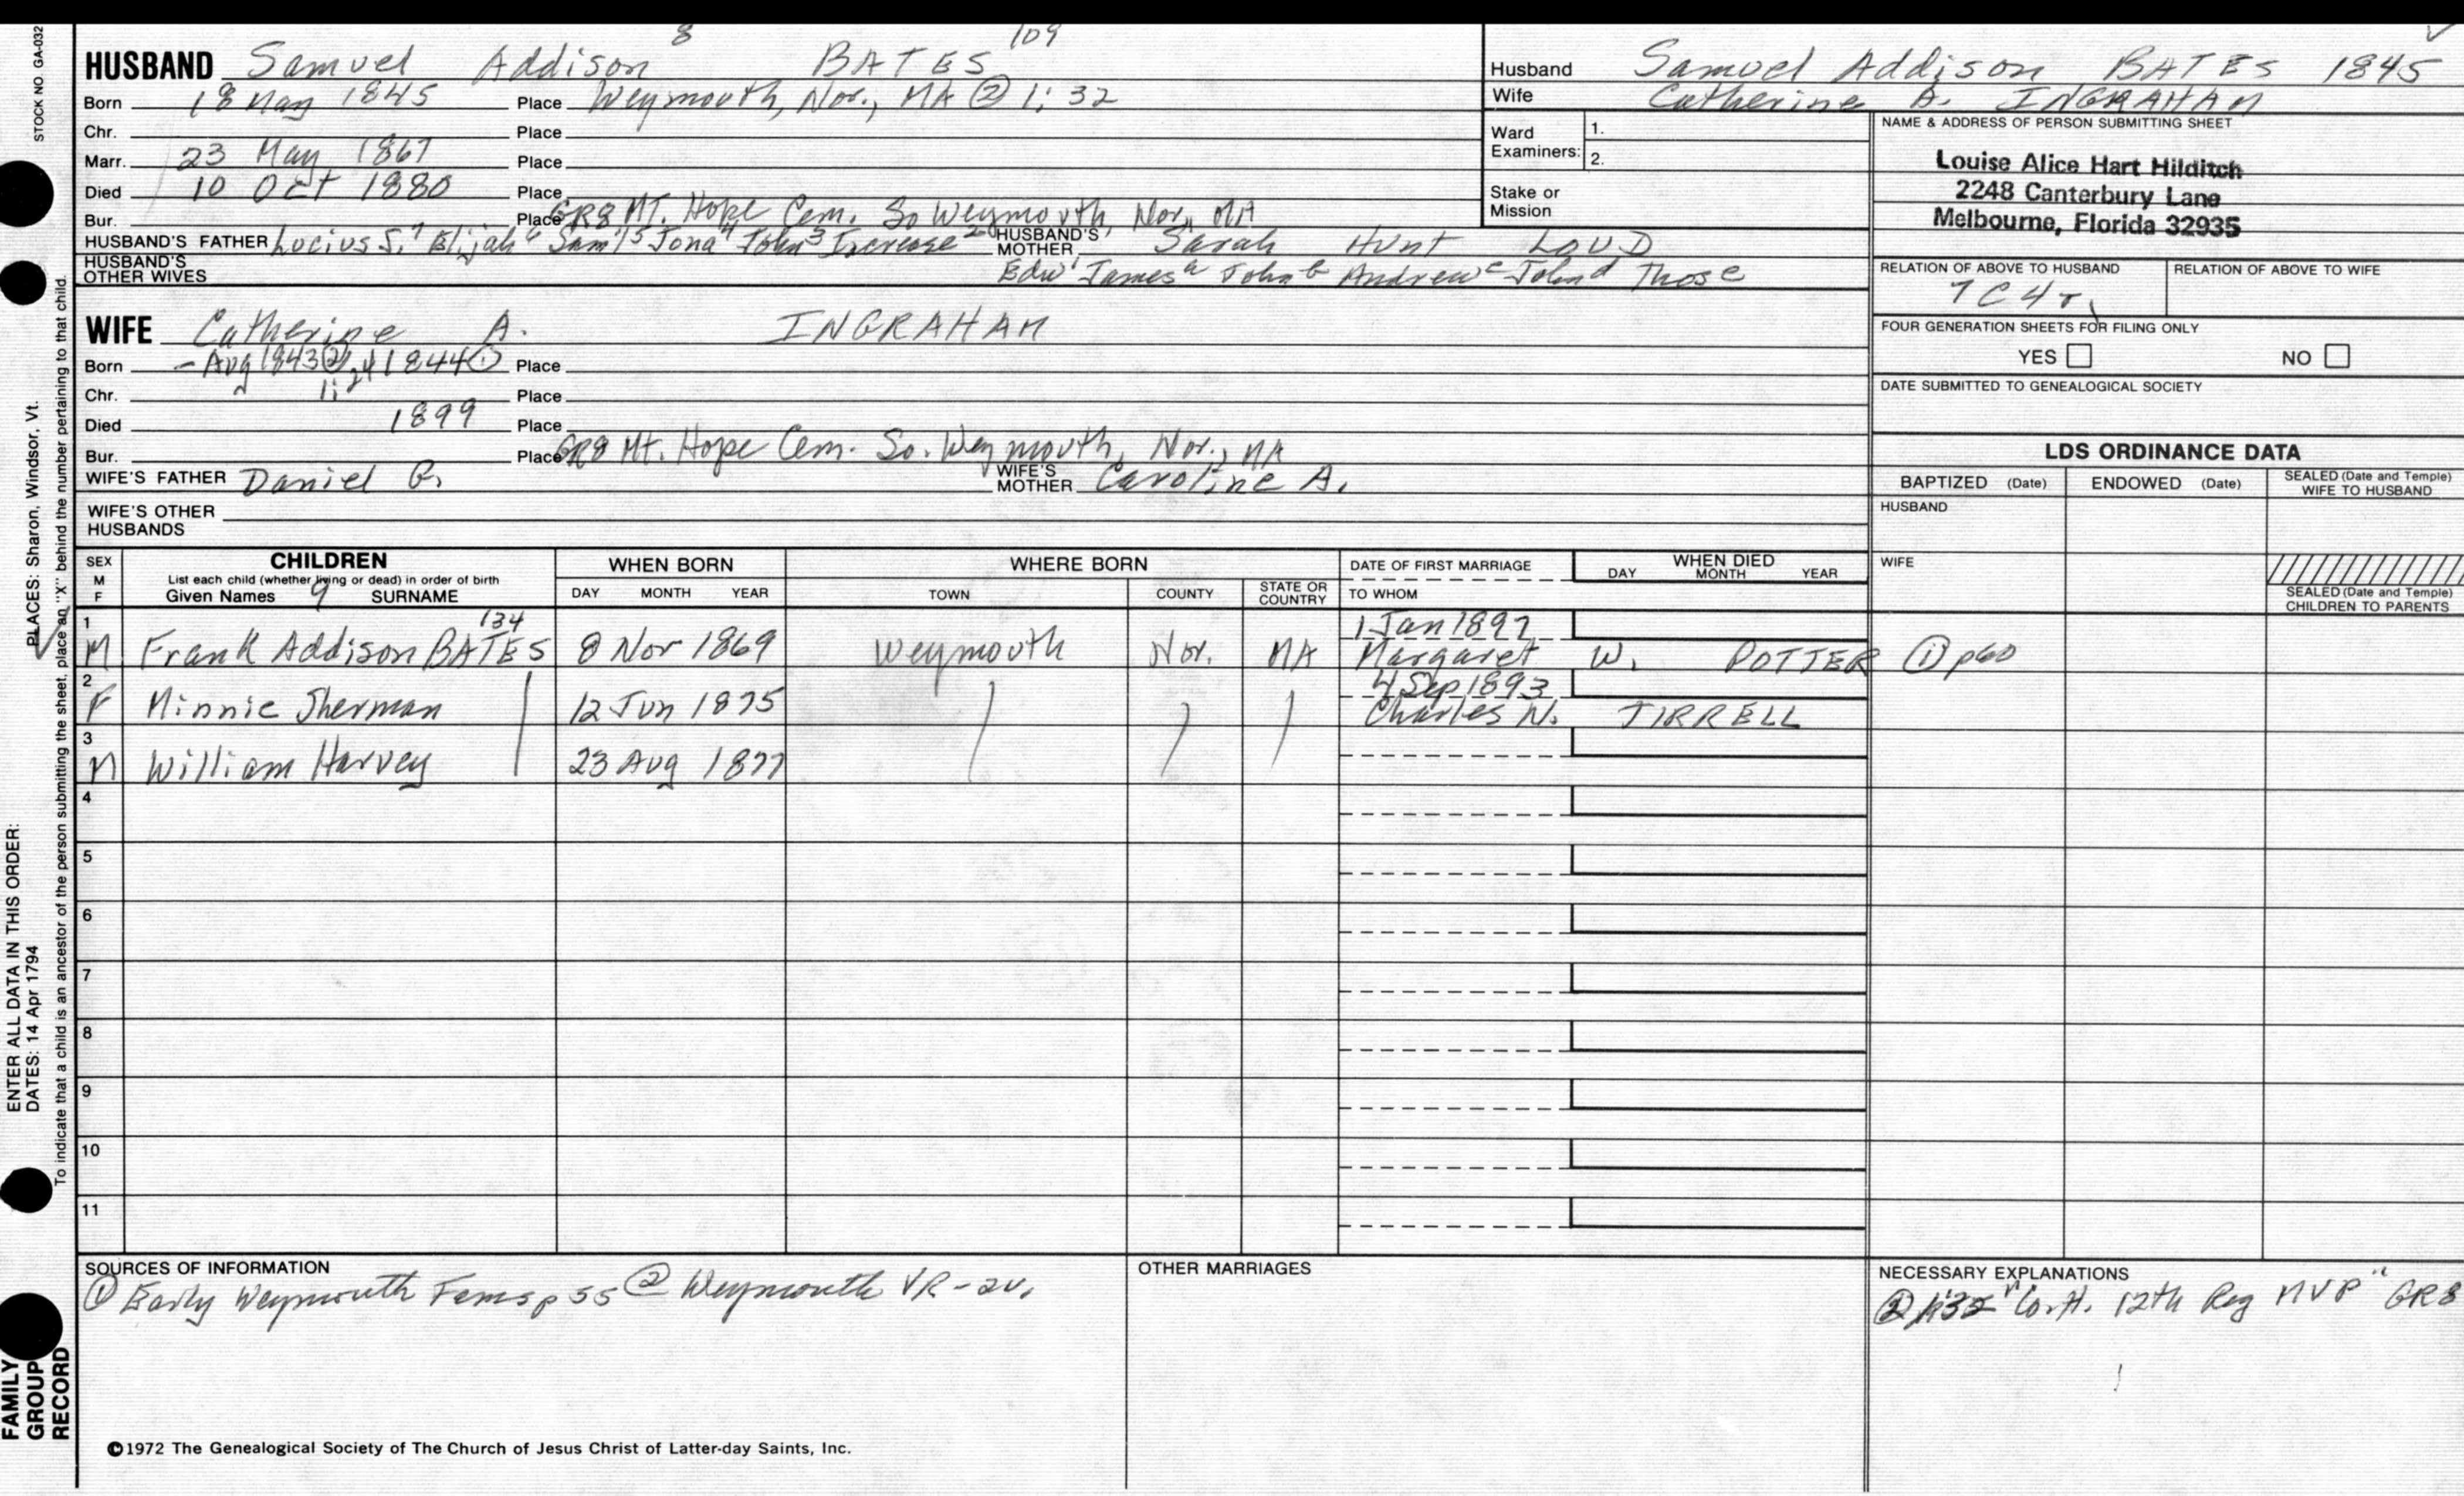 STOCK NO. GA-032
8 109
HUSBAND Samuel Addison BATES
Born 18 May 1845 Place Weymouth, Nor., MA ② 1:32
Chr. Place
Marr. 23 May 1867 Place
Died 10 Oct 1880 Place
Bur. Place GR8 MT. Hope Cem. So Weymouth, Nor., MA
HUSBAND'S FATHER Lucius S.7 Elijah6 Sam'l5 Jona4 John3 Increase2 HUSBAND'S MOTHER Sarah Hunt LOUD
HUSBAND'S OTHER WIVES Edw1 James a John b Andrew c John d Thos e
WIFE Catherine A. INGRAHAM
Born - Aug 1843② 1844① Place
1:24
Chr. Place
Died 1899 Place
Bur. Place GR8 Mt. Hope Cem. So. Weymouth, Nor., MA
WIFE'S FATHER Daniel WIFE'S MOTHER Caroline A.
WIFE'S OTHER HUSBANDS
Husband Samuel Addison BATES 1845
Wife Catherine A. INGRAHAM
Ward Examiners: 1.
2.
Stake or Mission
NAME & ADDRESS OF PERSON SUBMITTING SHEET
Louise Alice Hart Hilditch
2248 Canterbury Lane
Melbourne, Florida 32935
RELATION OF ABOVE TO HUSBAND RELATION OF ABOVE TO WIFE
7C4r
FOUR GENERATION SHEETS FOR FILING ONLY
YES NO
DATE SUBMITTED TO GENEALOGICAL SOCIETY
LDS ORDINANCE DATA
BAPTIZED (Date) ENDOWED (Date) SEALED (Date and Temple) WIFE TO HUSBAND
HUSBAND
WIFE
SEALED (Date and Temple) CHILDREN TO PARENTS
SEX M F CHILDREN WHEN BORN WHERE BORN DATE OF FIRST MARRIAGE WHEN DIED
List each child (whether living or dead) in order of birth
Given Names 9 SURNAME DAY MONTH YEAR TOWN COUNTY STATE OR COUNTRY TO WHOM DAY MONTH YEAR
1 134 1 Jan 1897
M Frank Addison BATES 8 Nov 1869 Weymouth Nor. MA Margaret W. POTTER ① p60
2 4 Sep 1893
F Minnie Sherman 12 Jun 1875 Charles N. TIRRELL
3
M William Harvey 23 Aug 1877
4
5
6
7
8
9
10
11
SOURCES OF INFORMATION
① Early Weymouth Fams p 55 ② Weymouth VR-2v.
OTHER MARRIAGES
NECESSARY EXPLANATIONS
② 1:32 "Co. H. 12th Reg MVP" GR8
©1972 The Genealogical Society of The Church of Jesus Christ of Latter-day Saints, Inc.
ENTER ALL DATA IN THIS ORDER:
DATES: 14 Apr 1794
PLACES: Sharon, Windsor, Vt.
To indicate that a child is an ancestor of the person submitting the sheet, place an "X" behind the number pertaining to that child.
FAMILY GROUP RECORD